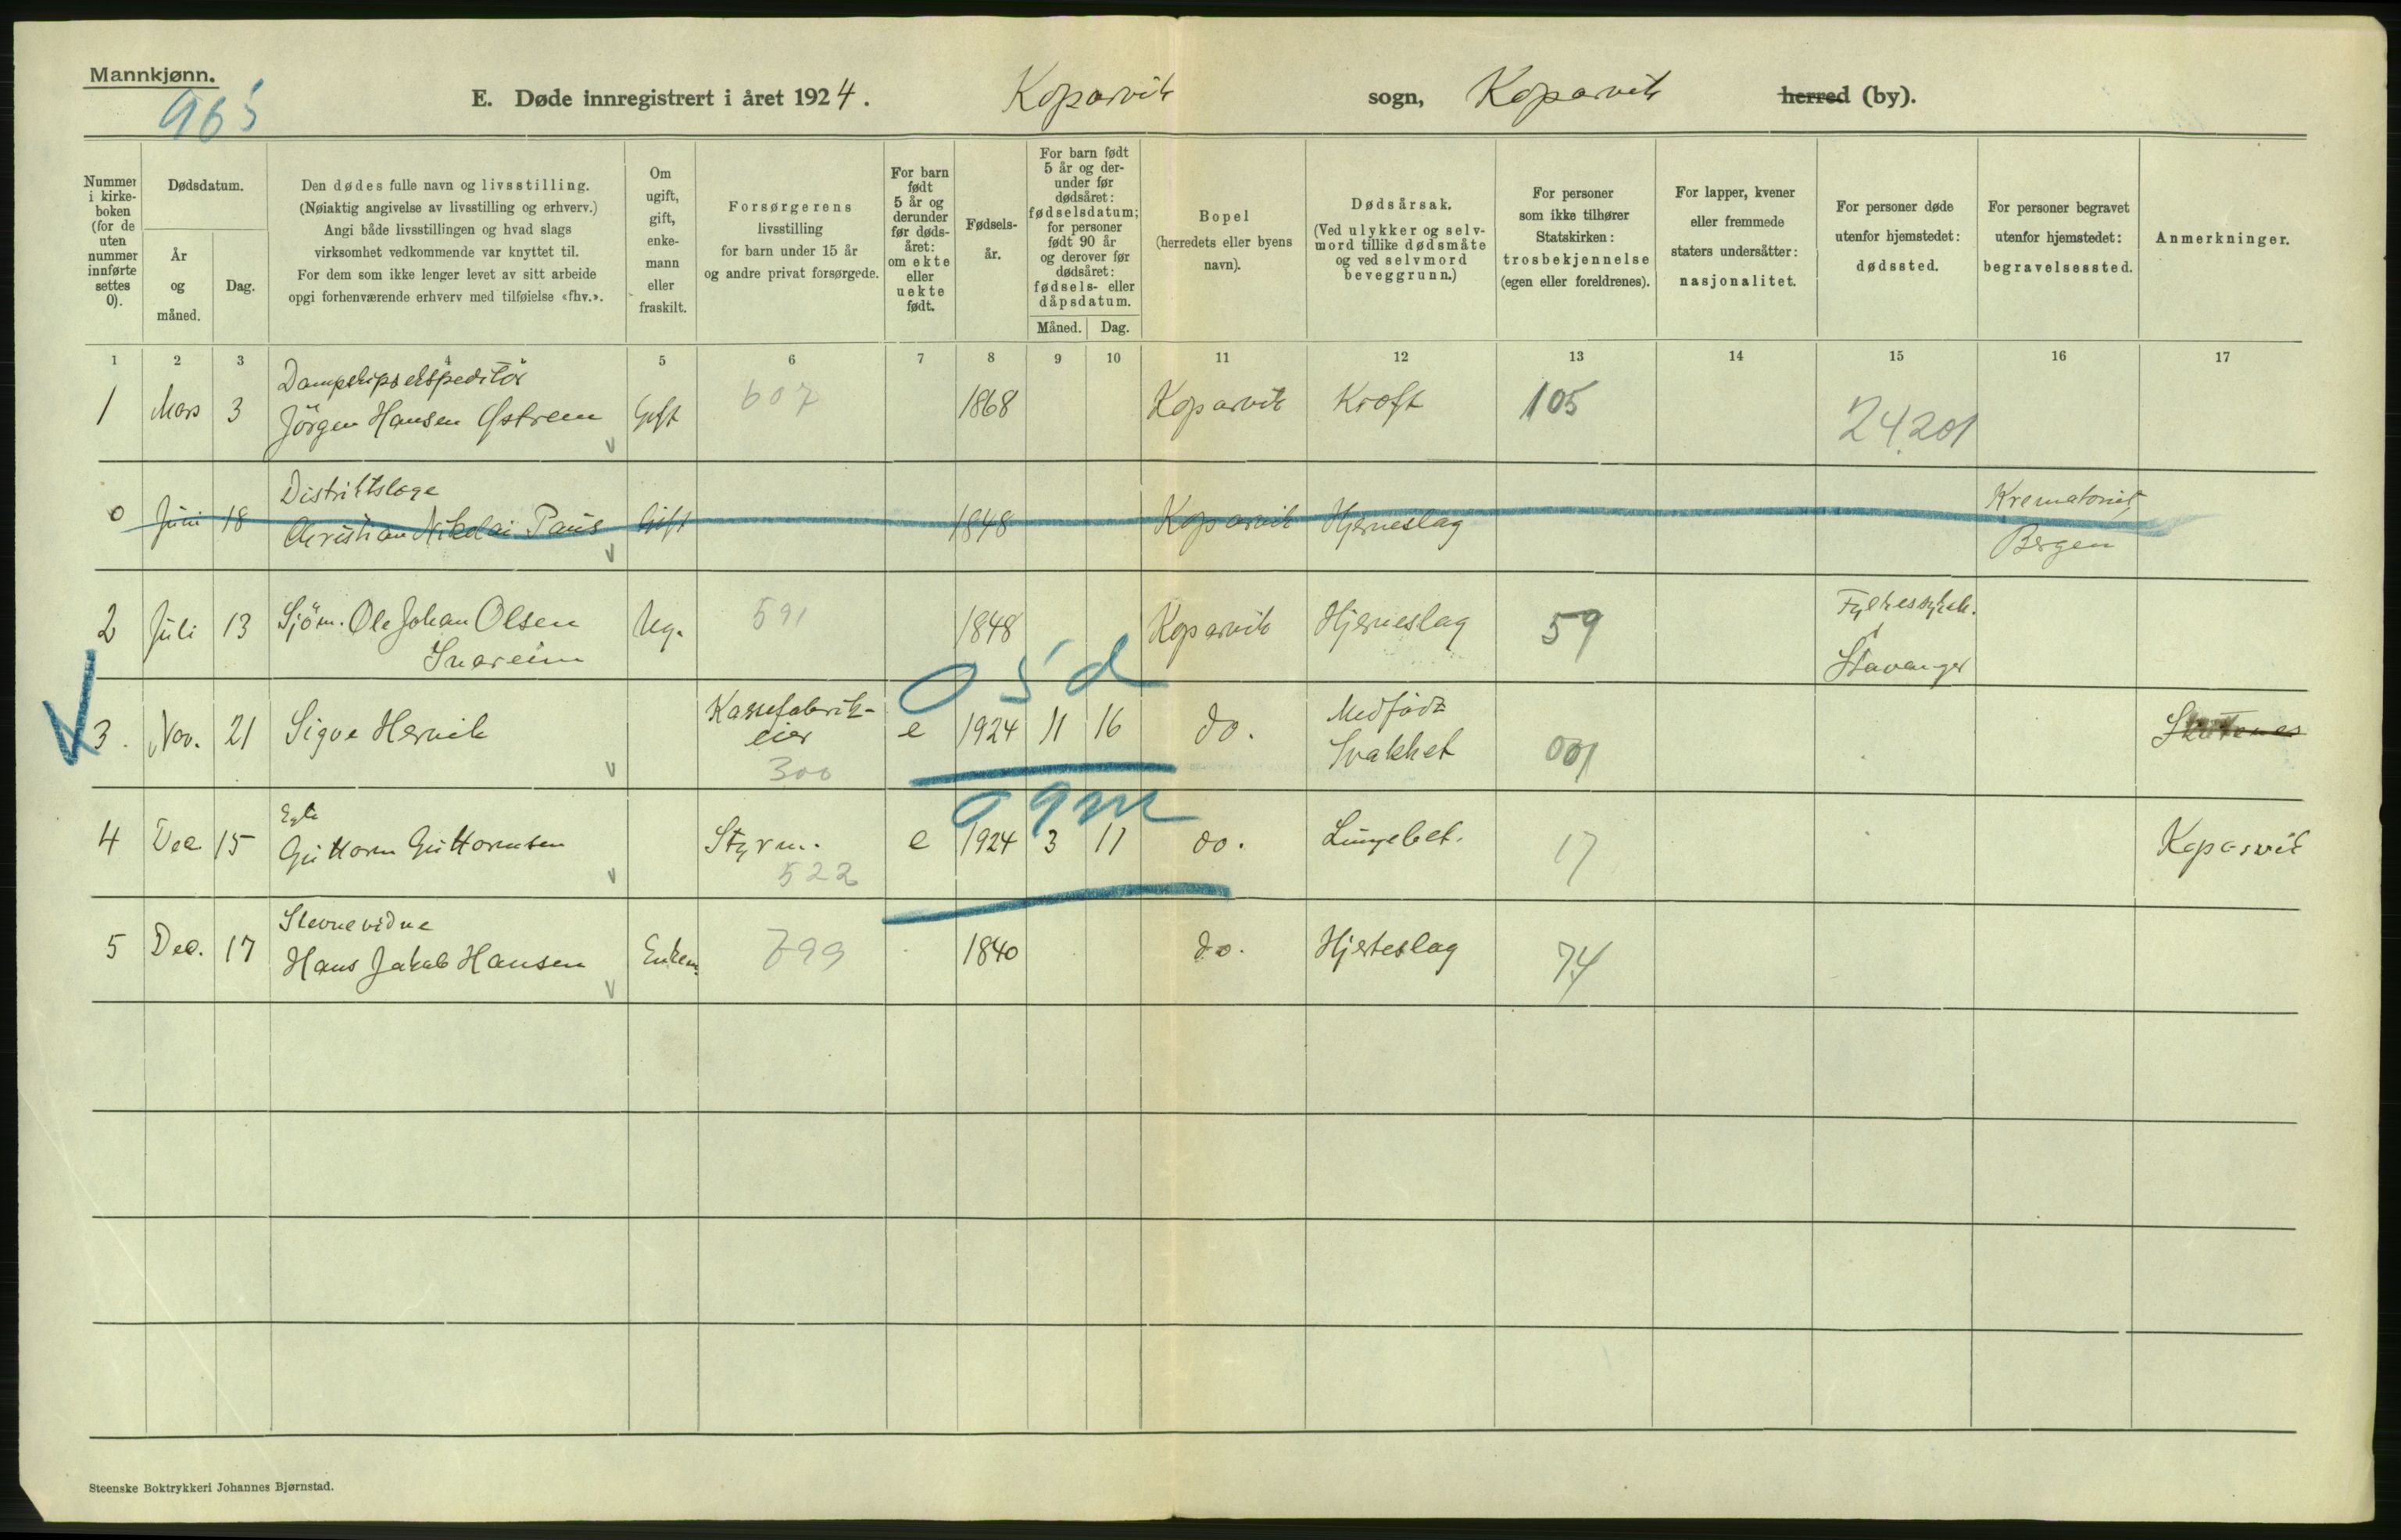 Mannkjønn.
965
E. Døde innregistrert i året 1924. Koparvik sogn, Koparvik herred (by).
Nummer i kirke-boken (for de uten nummer innførte settes 0).
Dødsdatum.
År og måned.
Dag.
Den dødes fulle navn og livsstilling.
(Nøiaktig angivelse av livsstilling og erhverv.)
Angi både livsstillingen og hvad slags
virksomhet vedkommende var knyttet til.
For dem som ikke lenger levet av sitt arbeide
opgi forhenværende erhverv med tilføielse «fhv.».
Om ugift, gift, enke-mann eller fraskilt.
Forsørgerens
livsstilling
for barn under 15 år
og andre privat forsørgede.
For barn født 5 år og derunder før døds-året: om ekte eller uekte født.
Fødsels-år.
For barn født 5 år og der-under før dødsåret: fødselsdatum; for personer født 90 år og derover før dødsåret: fødsels- eller dåpsdatum.
Måned. Dag.
Bopel
(herredets eller byens
navn).
Dødsårsak.
(Ved ulykker og selv-
mord tillike dødsmåte
og ved selvmord
beveggrunn.)
For personer
som ikke tilhører
Statskirken:
trosbekjennelse
(egen eller foreldrenes).
For lapper, kvener
eller fremmede
staters undersåtter:
nasjonalitet.
For personer døde
utenfor hjemstedet:
dødssted.
For personer begravet
utenfor hjemstedet:
begravelsessted.
Anmerkninger.
1 2 3 4 5 6 7 8 9 10 11 12 13 14 15 16 17
Dampskipsekspeditör
1 Mars 3 Jörgen Hansen Østrem Gift 607 1868 Koparvik Kreft 105 24201
Distriktslæge
0 Juni 18 Christian Nikolai Paus Gift 1848 Koparvik Hjerneslag Krematoriet
Bergen
2 Juli 13 Sjöm. Ole Johan Olsen Ug. 591 1848 Koparvik Hjerneslag 59 Fylkessykeh.
Stavanger
0 5 d
3. Nov. 21 Sigve Hervik Kassefabrik-
eier 300 e 1924 11 16 do. Medfödt
Svakhet 001
0 9 m
4 Dec 15 Guttorm Guttormsen Styrm. 522 e 1924 3 11 do. Lungebet. 17 Koparvik
Stevnevidne
5 Dec. 17 Hans Jakob Hansen Enkem. 799 1840 do. Hjerteslag 74
Steenske Boktrykkeri Johannes Bjørnstad.